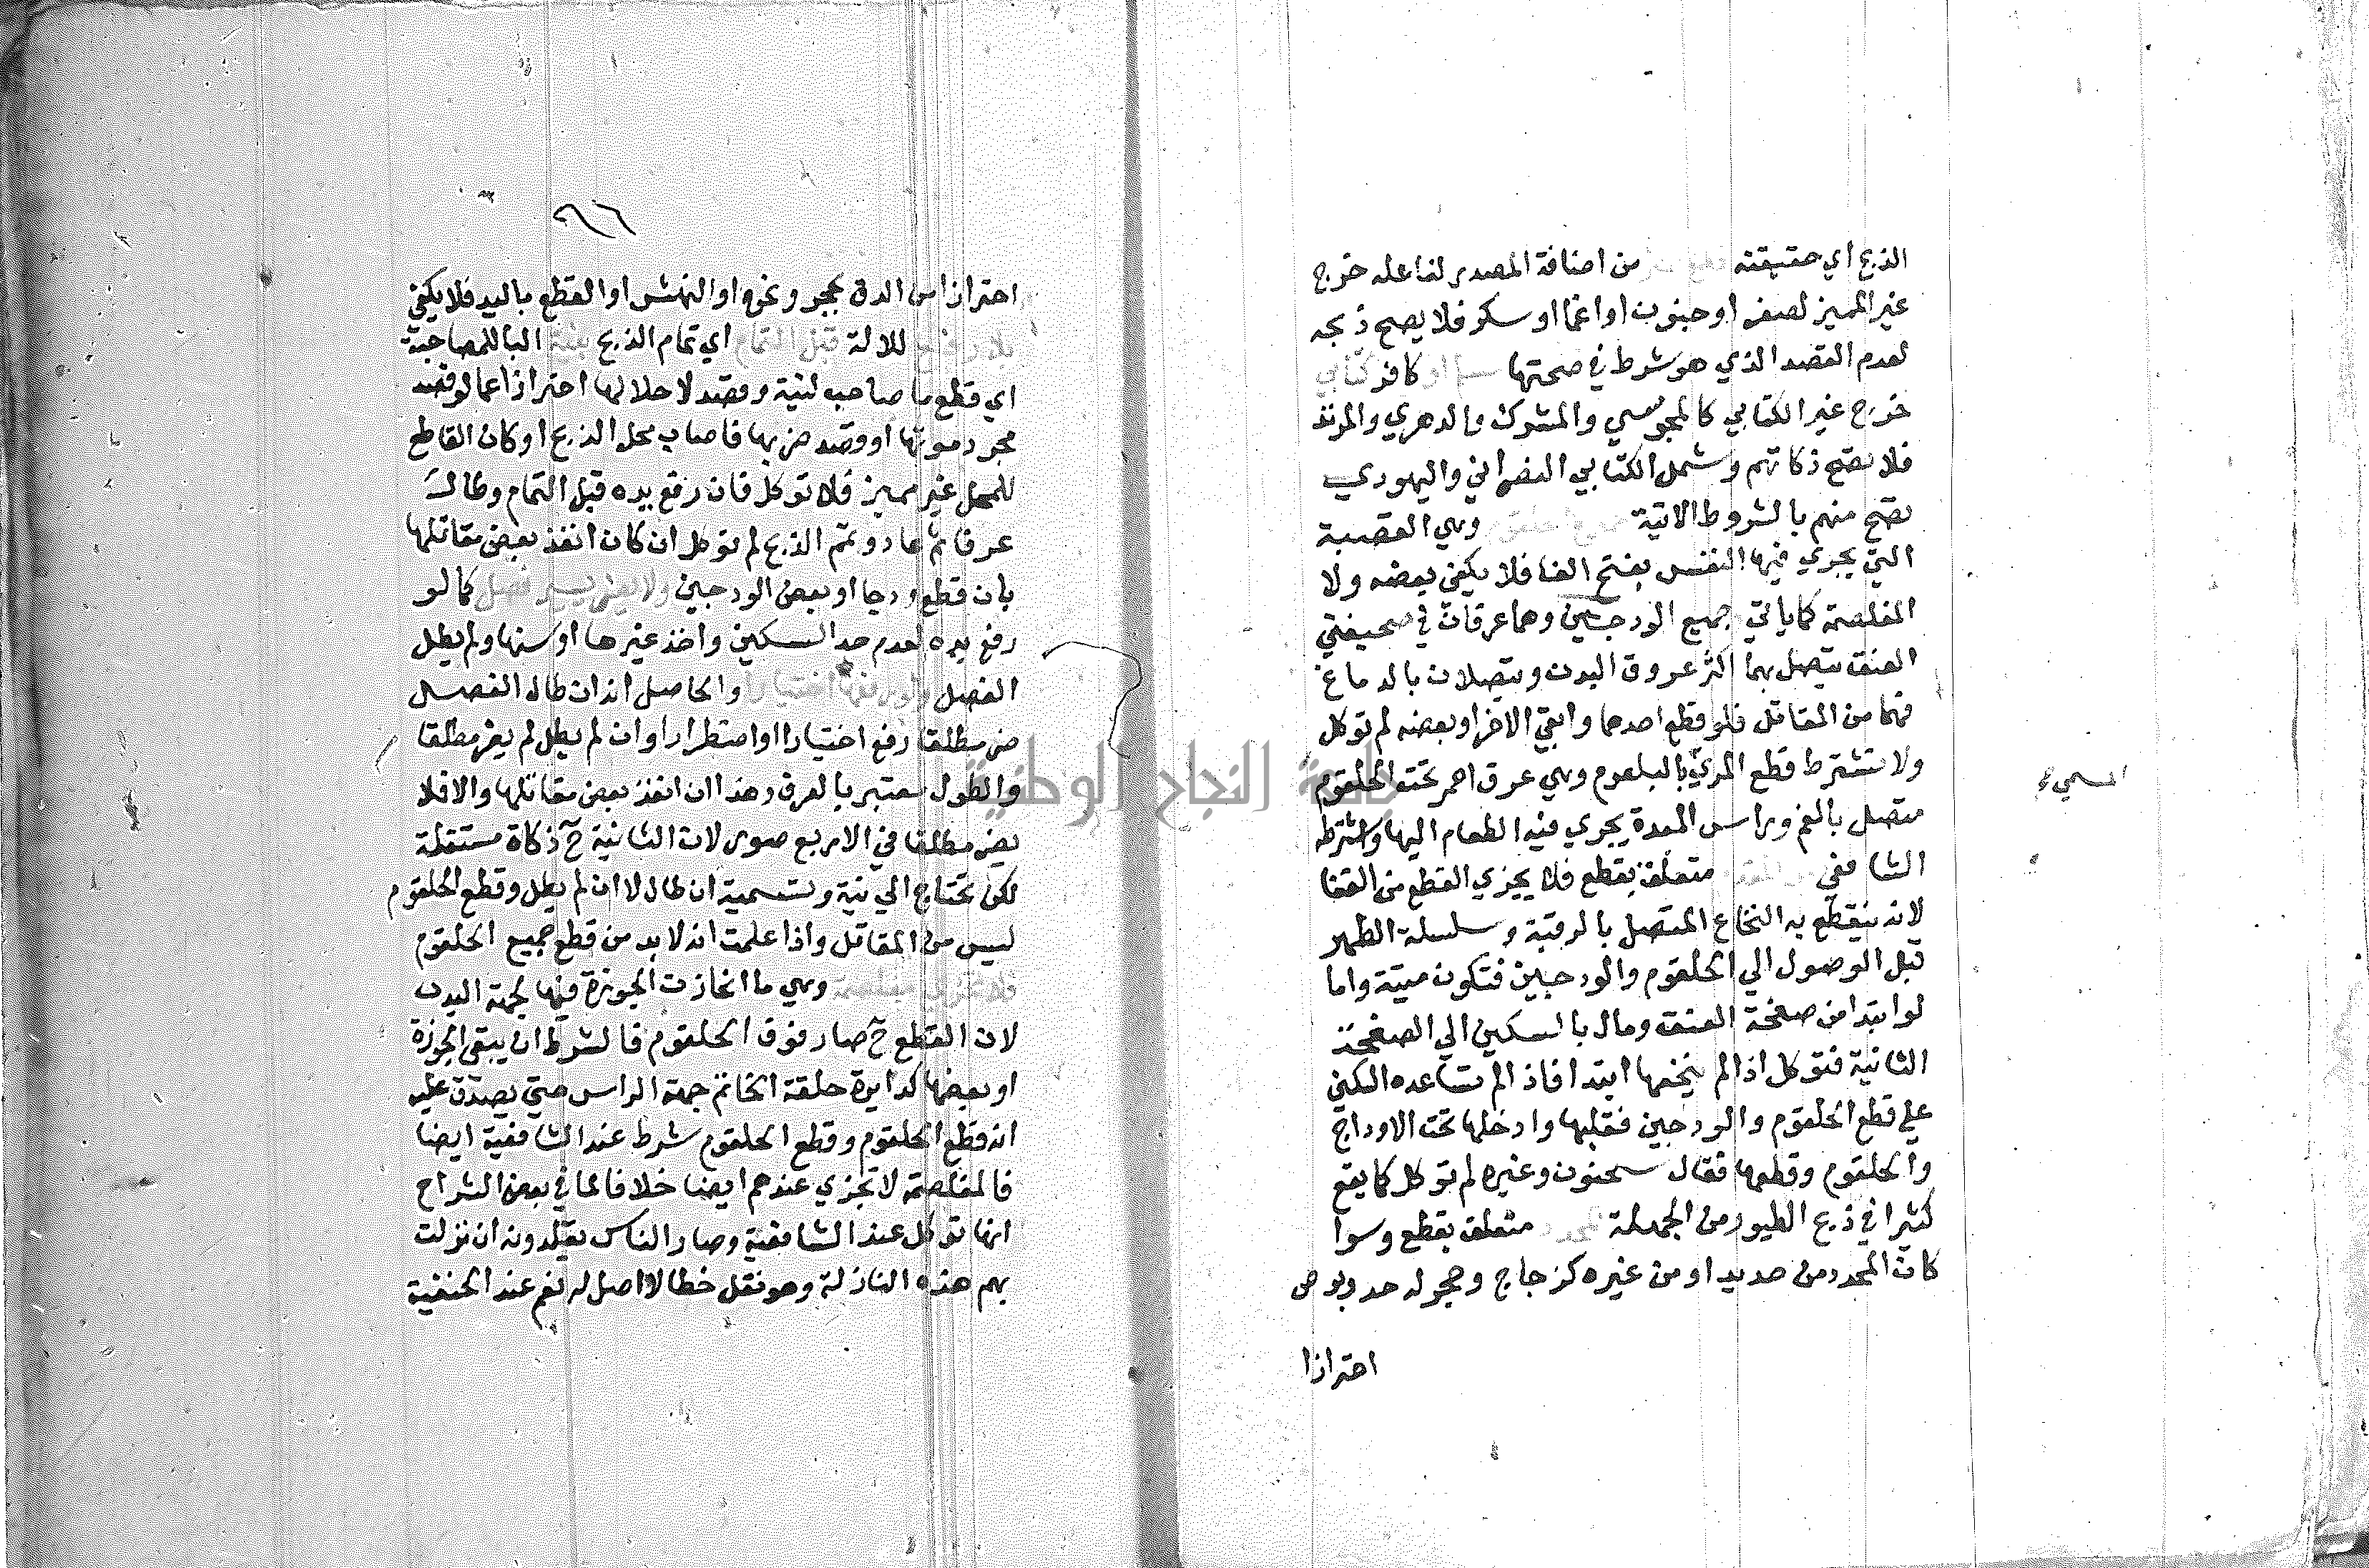 الذبح اي حقيقته قطع مميز من اضافة المصدر لفاعله خرج
غير المميز لصغر او جنون او اغما او سكر فلا يصح ذبحه
لعدم القصد الذي هو شرط في صحتها مسلم او كافر كتابي
خرج غير الكتابي كالمجوسي والمشرك والدهري والمرتد
فلا تصح ذكاتهم وشمل الكتابي النصراني واليهودي
تصح منهم بالشروط الاتية جميع الحلقوم وهي القصبة
التي يجري فيها النفس بفتح الفا فلا يكفي بعضه ولا
المغلصمة كما ياتي وجميع الودجين وهما عرقان في صحيفتي
العنق يتصل بهما اكثر عروق البدن ويتصلان بالدماغ
فهما من المقاتل فلو قطع احدهما وابقي الاخر او بعضه لم توكل
ولا تشترط قطع المريء بالبلعوم وهي عرق احمر تحت الحلقوم
المسمي
متصل بالفم وبراس المعدة يجري فيه الطعام اليها واشترطه
الشافعي من المقدم متعلق بقطع فلا يجزي القطع من القفا
لانه ينقطع به النخاع المتصل بالرقبة وسلسلة الظهر
قبل الوصول الي الحلقوم والودجين فتكون ميتة واما
لو ابتدا من صفحة العنق ومال بالسكين الي الصفحة
الثانية فتوكل اذا لم ينخعها ابتدا فاذا لم تساعده السكين
علي قطع الحلقوم والودجين فقلبها وادخلها تحت الاوداج
والحلقوم وقطعها فقال سحنون وغيره لم توكل كما يقع
كثيرا في ذبح الطيور من الجهلة بمحدد متعلق بقطع وسوا
كان المحدد من حديد او من غيره كزجاج وحجر له حد وبوص
احترازا
٩٦
احترازا من الدق بحجر ونحوه او النهش او القطع باليد فلا يكفي
بلا رفع للالة قبل التمام اي تمام الذبح بنية البا للمصاحبة
اي قطع مصاحب لنية وقصد لاحلالها احترازا عما لو قصد
مجرد موتها او قصد ضربها فاصاب محل الذبح او كان القاطع
للمحل غير مميز فلا توكل فان رفع يده قبل التمام وطال
عرفا ثم عاد وتمم الذبح لم توكل ان كان انفذ بعض مقاتلها
بان قطع ودجا او بعض الودجين ولا يضر يسير فصل كما لو
رفع يده لعدم حد السكين واخذ غيرها او سنها ولم يطل
الفصل ولو رفعها اختيارا والحاصل انه ان طال الفصل
ضر مطلقا رفع اختيارا او اضطرارا وان لم يطل لم يضر مطلقا
والطول معتبر بالعرف وهذا ان انفذ بعض مقاتلها والا فلا
يضر مطلقا في الاربع صور لان الثانية ح ذكاة مستقلة
لكن تحتاج الي نية وتسمية ان طال لا ان لم يطل وقطع الحلقوم
ليس من المقاتل واذا علمت انه لا بد من قطع جميع الحلقوم
فلا تجزي مغلصمة وهي ما انحازت الجوزة فيها لجهة البدن
لان القطع ح صار فوق الحلقوم فالشرط ان يبقي الجوزة
او بعضها كدايرة حلقة الخاتم جهة الراس حتي يصدق عليه
انه قطع الحلقوم وقطع الحلقوم شرط عند الشافعية ايضا
فالمغلصمة لا تجزي عندهم ايضا خلافا لما في بعض الشراح
انها توكل عند الشافعية وصار الناس يقلدونه ان نزلت
بهم هذه النازلة وهو نقل خطا لا اصل له نعم عند الحنفية
جامعة النجاح الوطنية